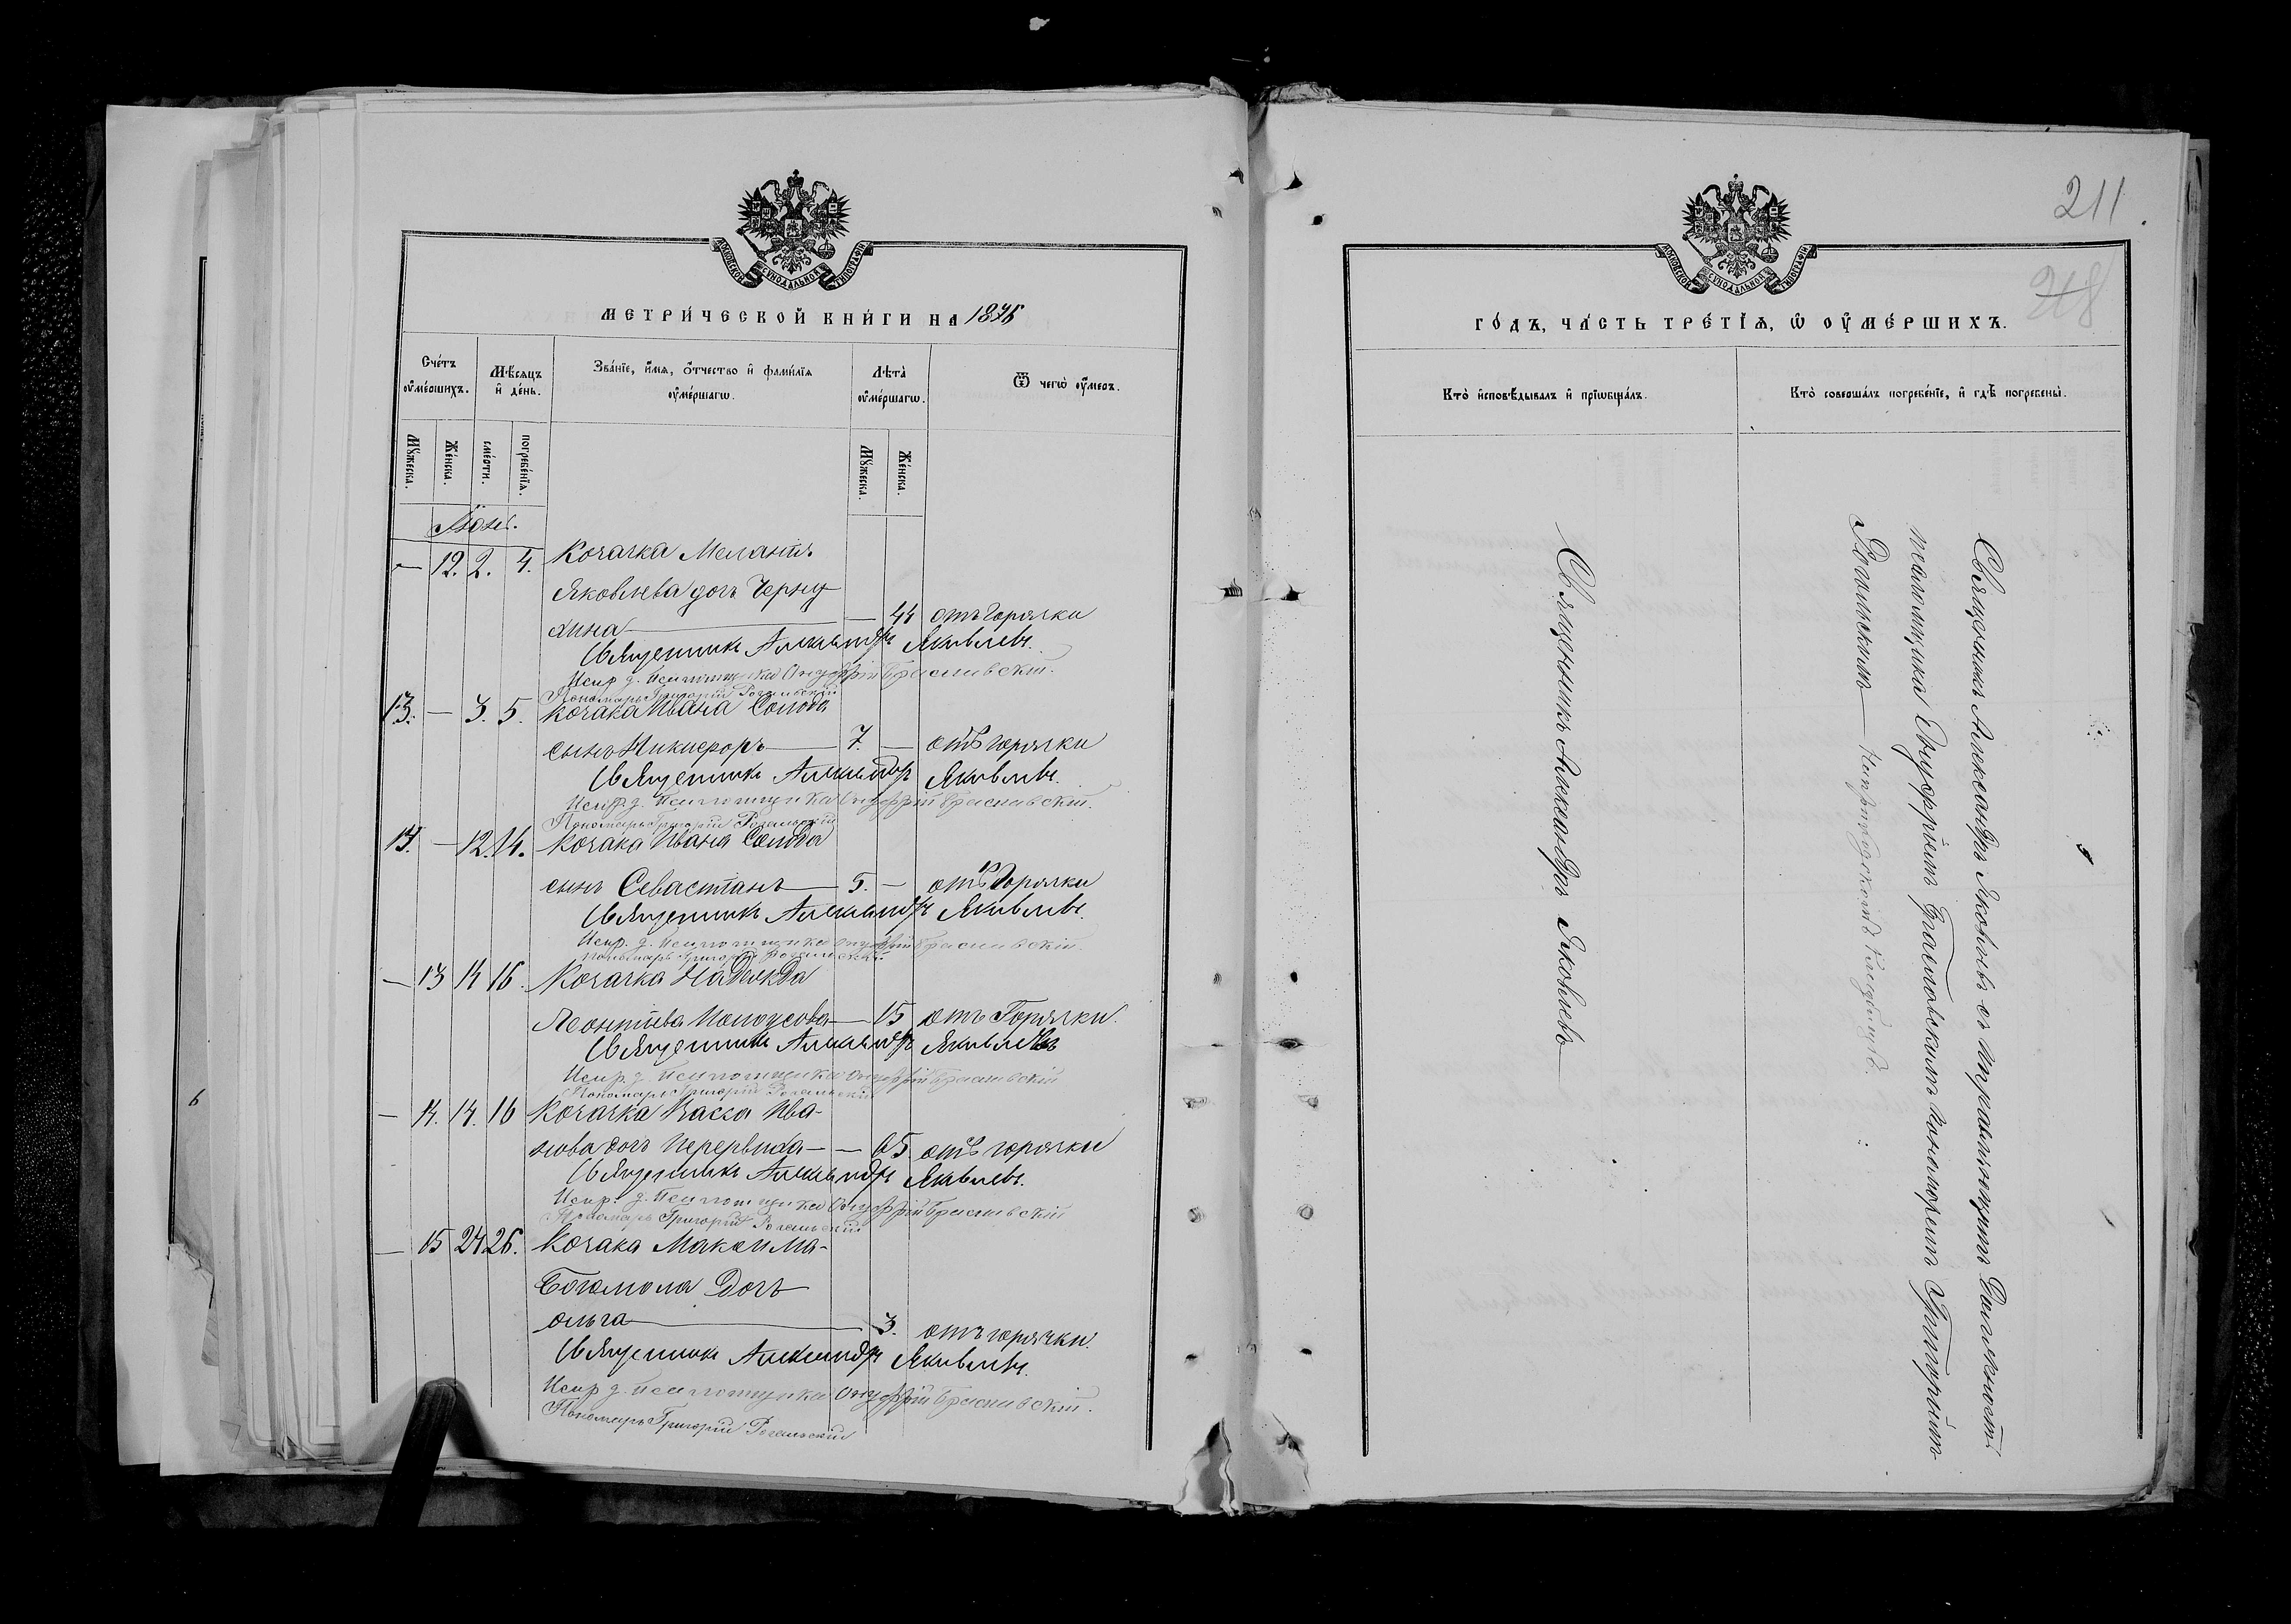 211
МОСКОВСКОЙ СѴНОДАЛЬНОЙ ТИПОГРАФІИ
МЕТРИ́ЧЕСКОЙ КНИ́ГИ НА 1876
Сче́тъ ᲂу҆ме́ршихъ.
Мѣ́сяцъ и҆ де́нь.
Зва́нїе, и҆́мѧ, ѻ҆́тчество и҆ фамилїѧ ᲂу҆ме́ршагѡ.
Лѣта̀ ᲂу҆ме́ршагѡ.
Ѿ чегѡ̀ ᲂу҆́меръ.
Мꙋ́жеска.
Же́нска.
сме́рти.
погребе́нїѧ.
Мꙋ́жеска.
Же́нска.
Іюнь.
— 12. 2. 4. Козачка Меланія
Яковлева дочь Черну
хина — 44 отъ горячки
Священникъ Александръ Яковлевъ.
Испр. д. псаломщика Онуфрій Браиловскій.
Пономарь Григорій Рогальскій
13. — 3. 5. Козака Ивана Солода
сынъ Никифоръ — 7. — отъ горячки
Священникъ Александръ Яковлевъ.
Испр. д. псаломщика Онуфрій Браиловскій.
Пономарь Григорій Рогальскій
14. — 12. 14. Козака Ивана Солода
сынъ Севастіанъ — 5. — отъ горячки
Священникъ Александръ Яковлевъ.
Испр. д. псаломщика Онуфрій Браиловскій.
Пономарь Григорій Рогальскій
— 13 14 16. Козачка Надежда
Леонтіева — 15 отъ горячки.
Священникъ Александръ Яковлевъ
Испр. д. псаломщика Онуфрій Браиловскій
Пономарь Григорій Рогальскій
— 14. 14. 16 Козачка Васса Ива-
нова дочь Перервиха — — 65 отъ горячки
Священникъ Александръ Яковлевъ.
Испр. д. псаломщика Онуфрій Браиловскій
Пономарь Григорій Рогальскій
— 15 24 26. Козака Максима
Богомола дочь
Ольга — 3. отъ горячки.
Священникъ Александръ Яковлевъ.
Испр. д. псаломщика Онуфрій Браиловскій.
Пономарь Григорій Рогальскій
МОСКОВСКОЙ СѴНОДАЛЬНОЙ ТИПОГРАФІИ
ГО́ДЪ, ЧА́СТЬ ТРЕ́ТЇѦ, Ѡ҆ ОУ҆МЕ́РШИХЪ.
Кто̀ и҆сповѣ́дывалъ и҆ прїѡбща́лъ.
Кто̀ соверша́лъ погребе́нїе, и҆ гдѣ̀ погребены̀.
Священникъ Александръ Яковлевъ —
Священникъ Александръ Яковлевъ съ исправляющимъ должность
псаломщика Онуфріемъ Браиловскимъ и пономаремъ Григоріемъ
Рогальскимъ — на приходскомъ кладбищѣ.